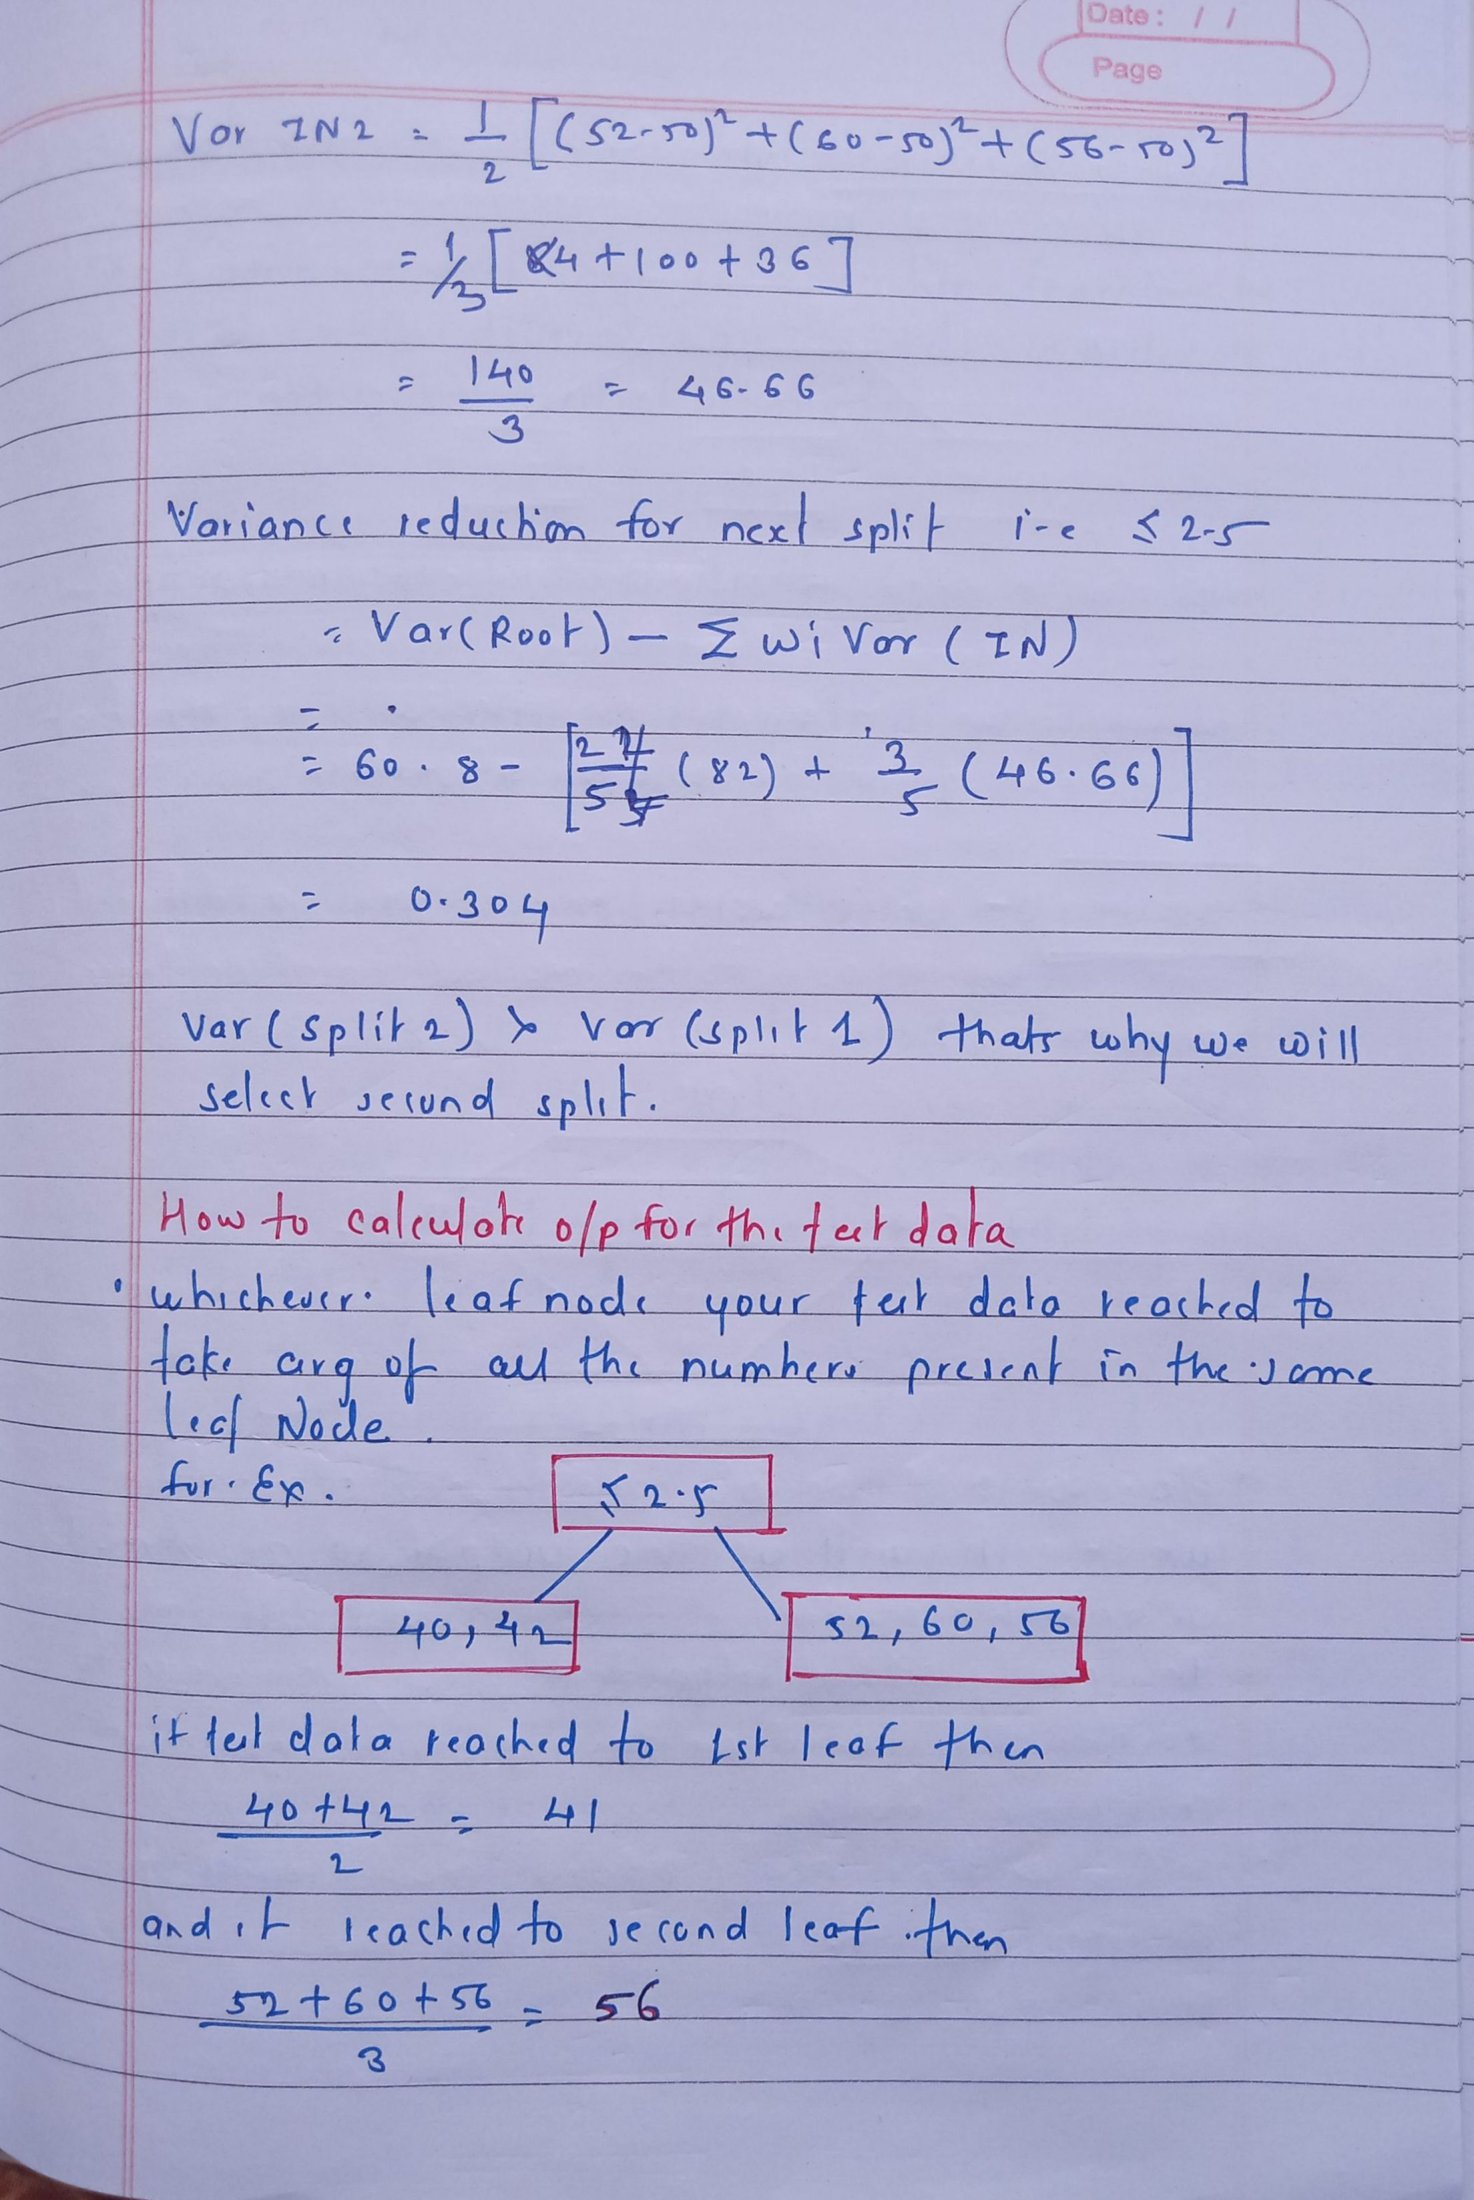 Date: / /
Page
Var IN2 = 1/2 [(52-50)² + (60-50)² + (56-50)²]
= 1/3 [4 + 100 + 36]
= 140/3 = 46.66
Variance reduction for next split i-e ≤ 2.5
= Var(Root) - Σ wi Var (IN)
=
= 60.8 - [2/5 (82) + 3/5 (46.66)]
= 0.304
Var (split 2) > Var (split 1) thats why we will
select second split.
How to calculate o/p for the test data
• whichever leaf node your test data reached to
take avg of all the numbers present in the same
leaf Node.
for Ex.
≤ 2.5
40, 42
52, 60, 56
if test data reached to 1st leaf then
40+42/2 = 41
and it reached to second leaf then
52+60+56/3 = 56